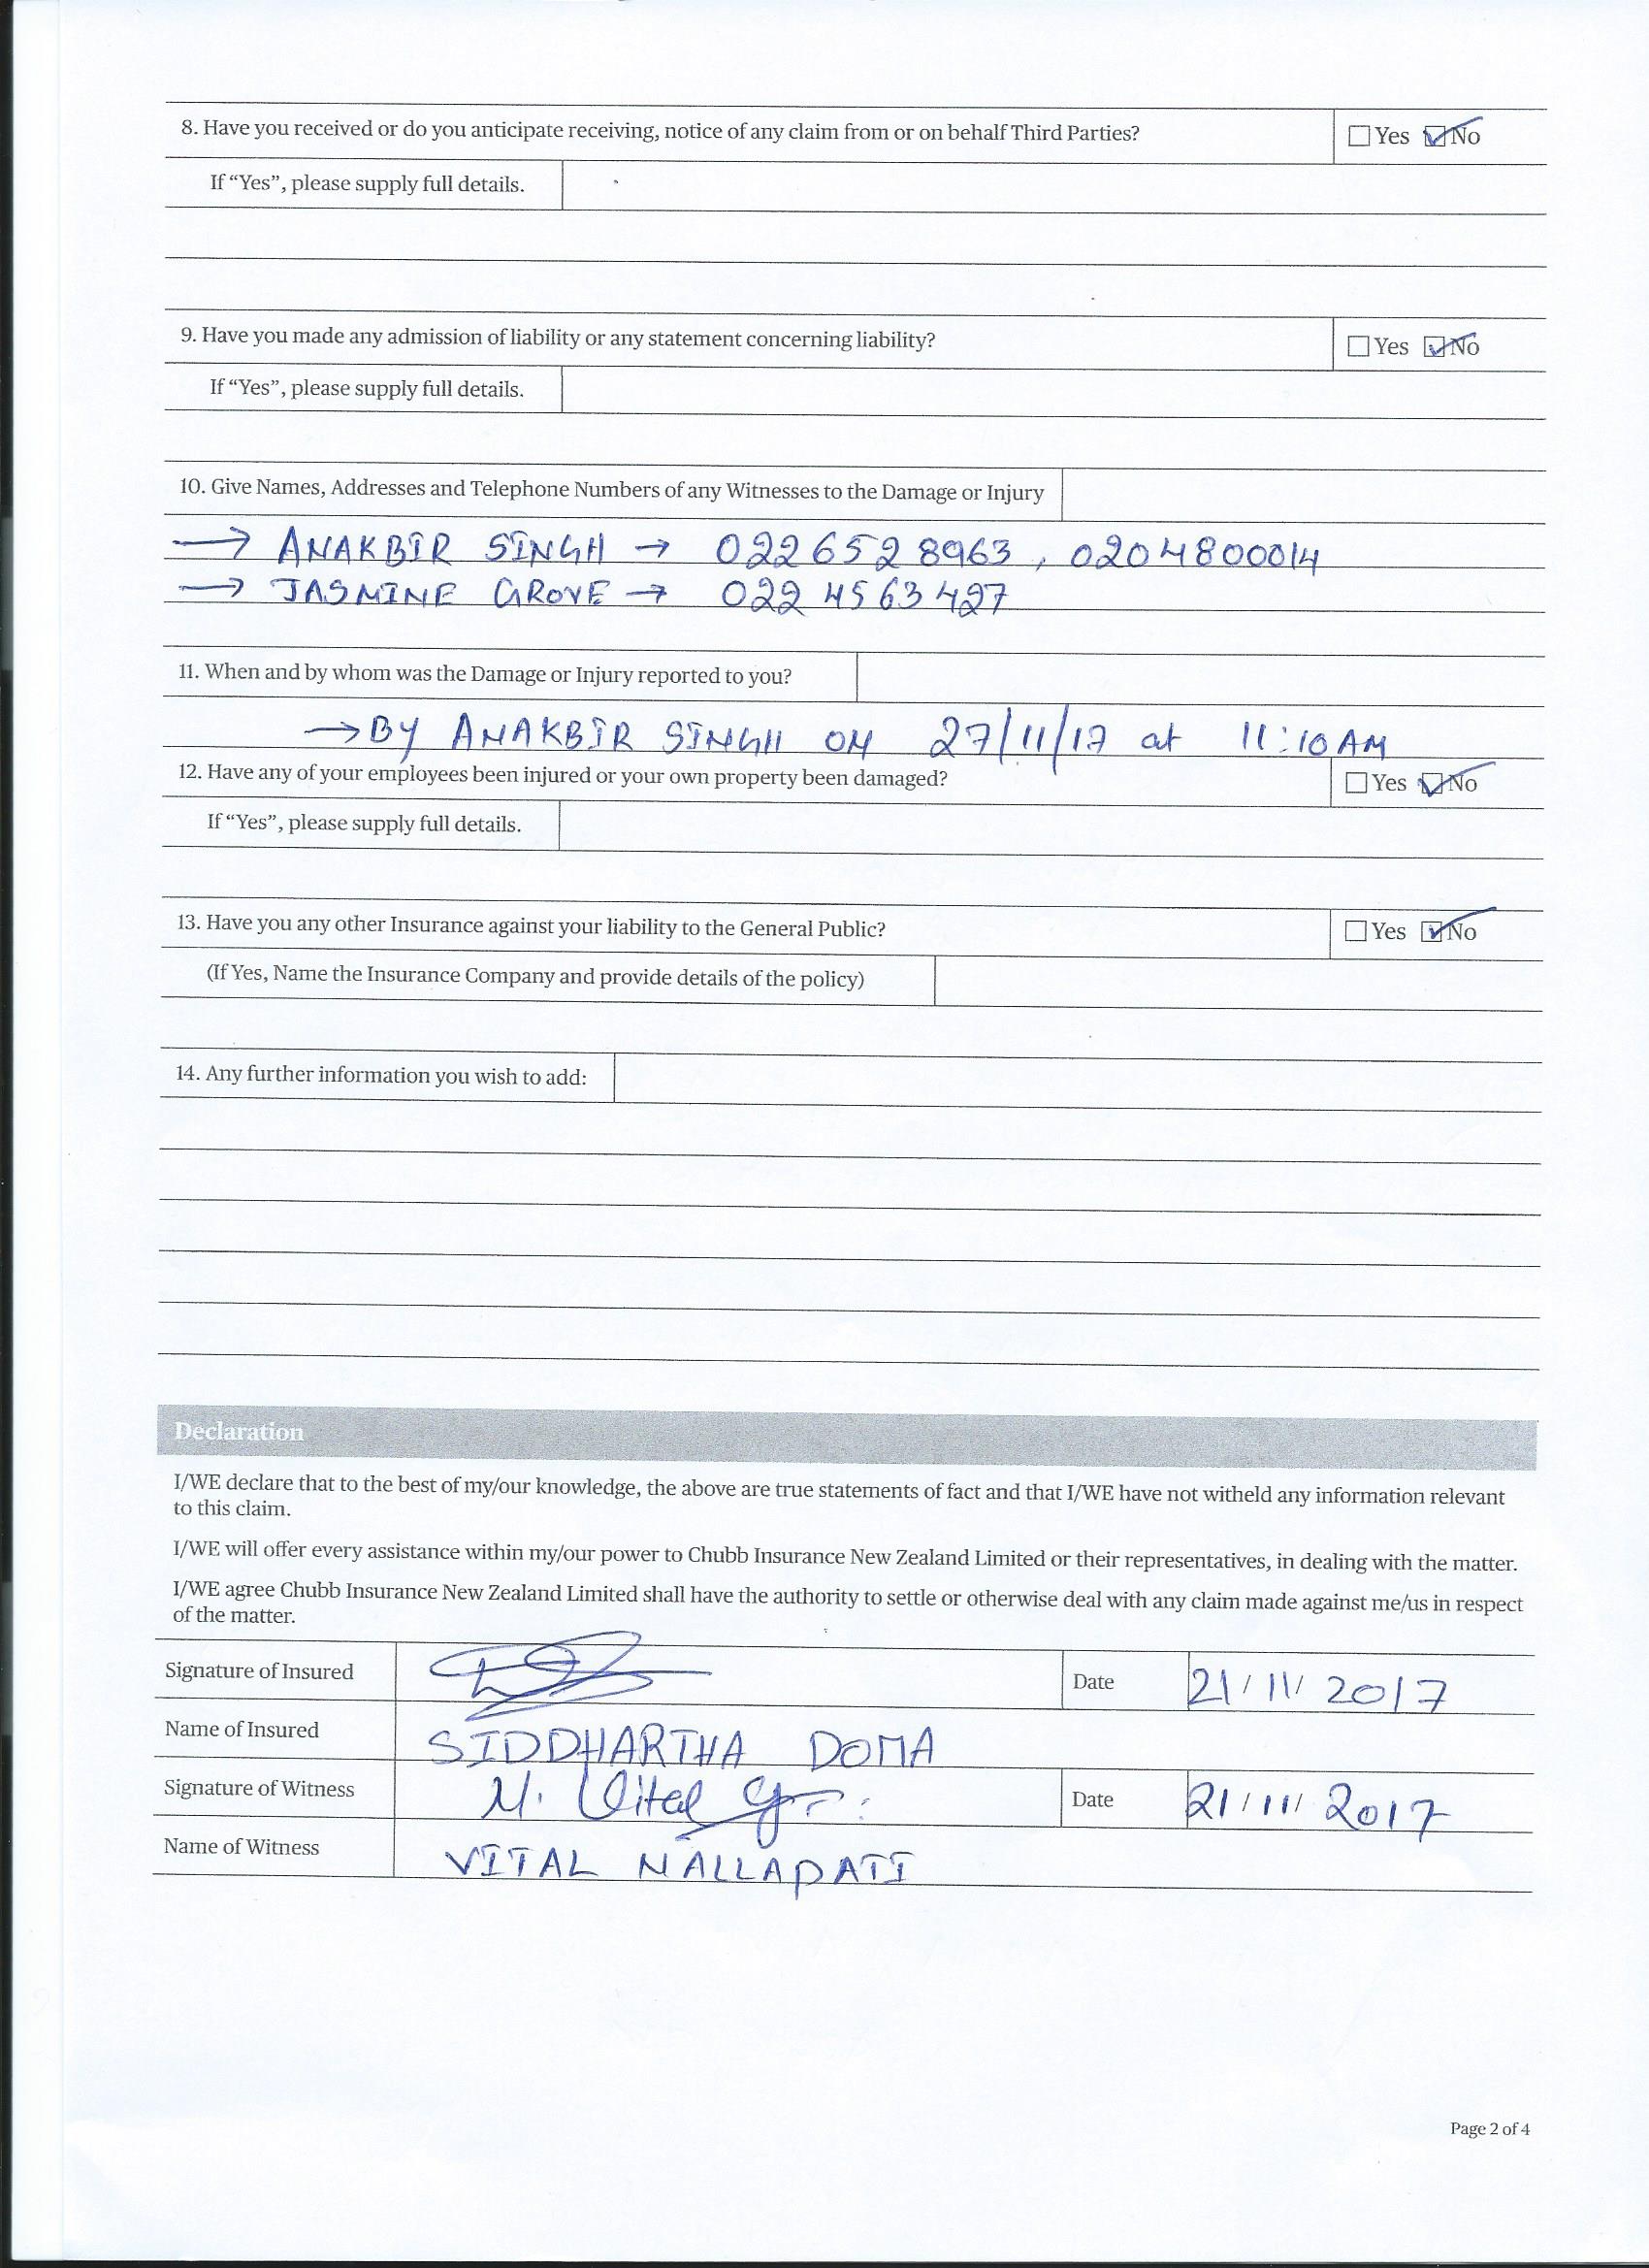 8. Have you received or do you anticipate receiving, notice of any claim from or on behalf Third Parties? Yes No
If “Yes”, please supply full details.
9. Have you made any admission of liability or any statement concerning liability? Yes No
If “Yes”, please supply full details.
10. Give Names, Addresses and Telephone Numbers of any Witnesses to the Damage or Injury
→ ANAKBIR SINGH → 0226528963, 0204800014
→ JASMINE GROVE → 022 4563427
11. When and by whom was the Damage or Injury reported to you?
→ BY ANAKBIR SINGH ON 27/11/17 at 11:10 AM
12. Have any of your employees been injured or your own property been damaged? Yes No
If “Yes”, please supply full details.
13. Have you any other Insurance against your liability to the General Public? Yes No
(If Yes, Name the Insurance Company and provide details of the policy)
14. Any further information you wish to add:
Declaration
I/WE declare that to the best of my/our knowledge, the above are true statements of fact and that I/WE have not witheld any information relevant
to this claim.
I/WE will offer every assistance within my/our power to Chubb Insurance New Zealand Limited or their representatives, in dealing with the matter.
I/WE agree Chubb Insurance New Zealand Limited shall have the authority to settle or otherwise deal with any claim made against me/us in respect
of the matter.
Signature of Insured Date 21/11/2017
Name of Insured SIDDHARTHA DOMA
Signature of Witness N. Vital Date 21/11/2017
Name of Witness VITAL NALLAPATI
Page 2 of 4